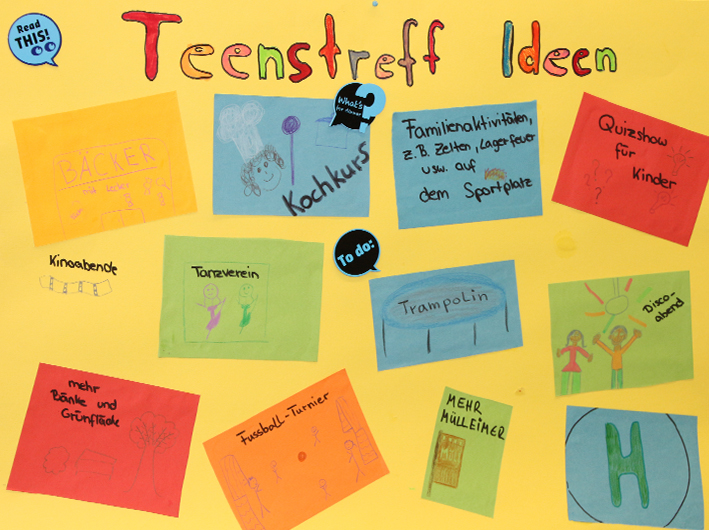 Read
THIS!
Teenstreff Ideen
BÄCKER
What's
?
Kochkurs
Familienaktivitäten,
z.B. Zelten, Lagerfeuer
usw. auf
dem Sportplatz
Quizshow
für
Kinder
Kinoabende
Tanzverein
To do:
Trampolin
Disco-
abend
mehr
Bänke und
Grünfläche
Fussball-Turnier
MEHR
MÜLLEIMER
H